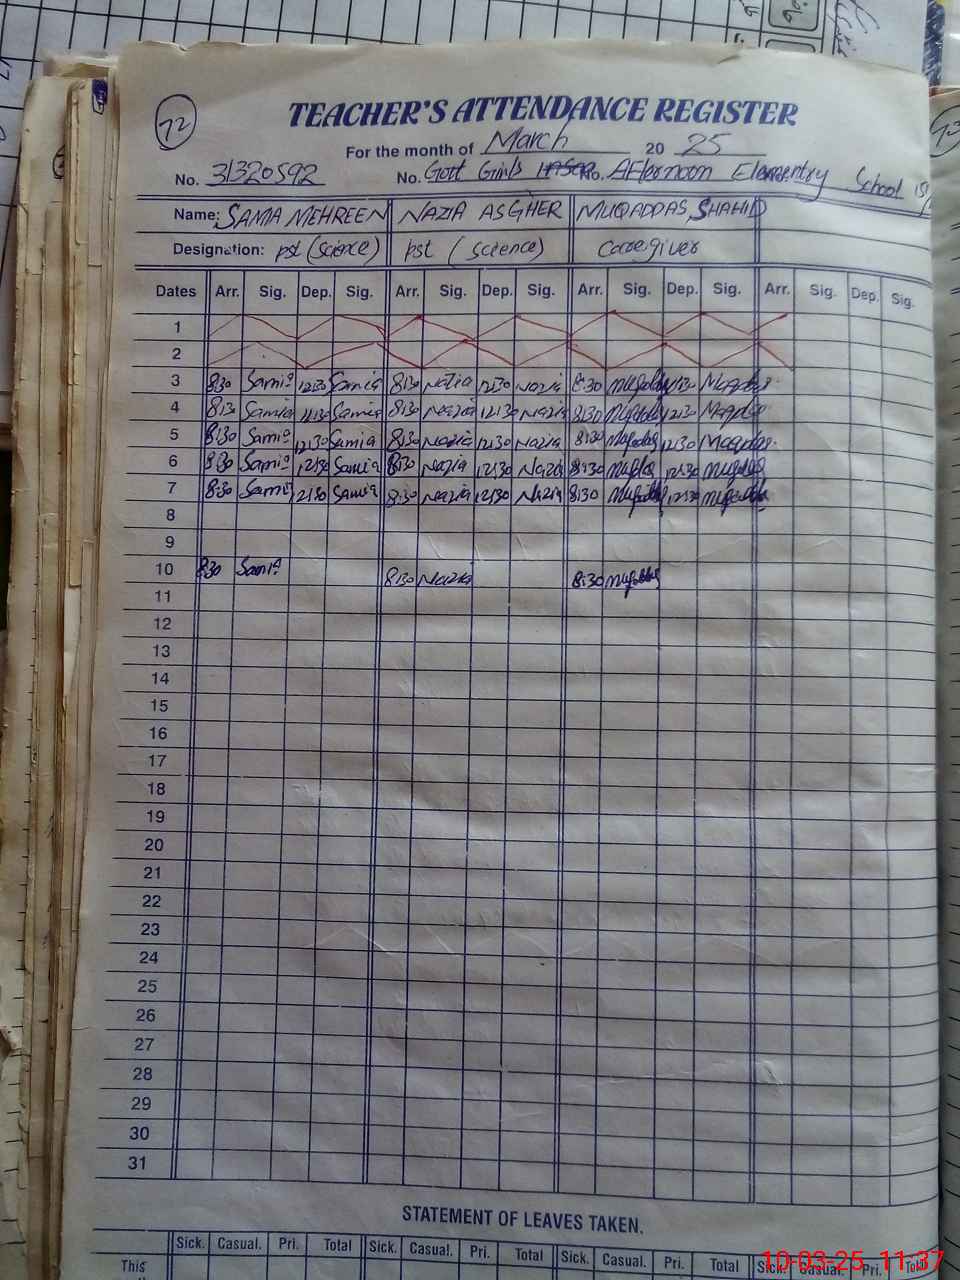 72
TEACHER'S ATTENDANCE REGISTER
For the month of March 20 25
No. 31320592 No. Govt Girls Afternoon Elementry School
Name: SAMIA MEHREEN NAZIA ASGHER MUQADDAS SHAHID
Designation: pst (science) pst (science) Caregiver
Dates Arr. Sig. Dep. Sig. Arr. Sig. Dep. Sig. Arr. Sig. Dep. Sig. Arr. Sig. Dep. Sig.
1
2
3 8:30 Samia 12:30 Samia 8:30 Nazia 12:30 Nazia 8:30 Muqadas 12:30 Muqadas
4 8:30 Samia 12:30 Samia 8:30 Nazia 12:30 Nazia 8:30 Muqadas 12:30 Muqadas
5 8:30 Samia 12:30 Samia 8:30 Nazia 12:30 Nazia 8:30 Muqadas 12:30 Muqadas
6 8:30 Samia 12:30 Samia 8:30 Nazia 12:30 Nazia 8:30 Muqadas 12:30 Muqadas
7 8:30 Samia 12:30 Samia 8:30 Nazia 12:30 Nazia 8:30 Muqadas 12:30 Muqadas
8
9
10 8:30 Samia 8:30 Nazia 8:30 Muqadas
11
12
13
14
15
16
17
18
19
20
21
22
23
24
25
26
27
28
29
30
31
STATEMENT OF LEAVES TAKEN.
Sick. Casual. Pri. Total Sick. Casual. Pri. Total Sick. Casual. Pri. Total Sick. Casual. Pri. Total
This
10-03-25 11:37